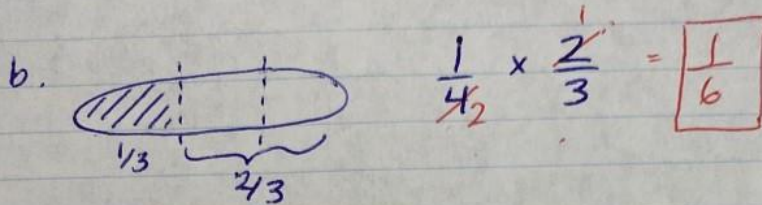 b.
1/3
2/3
1/4 2 × 2/3 1 = 1/6